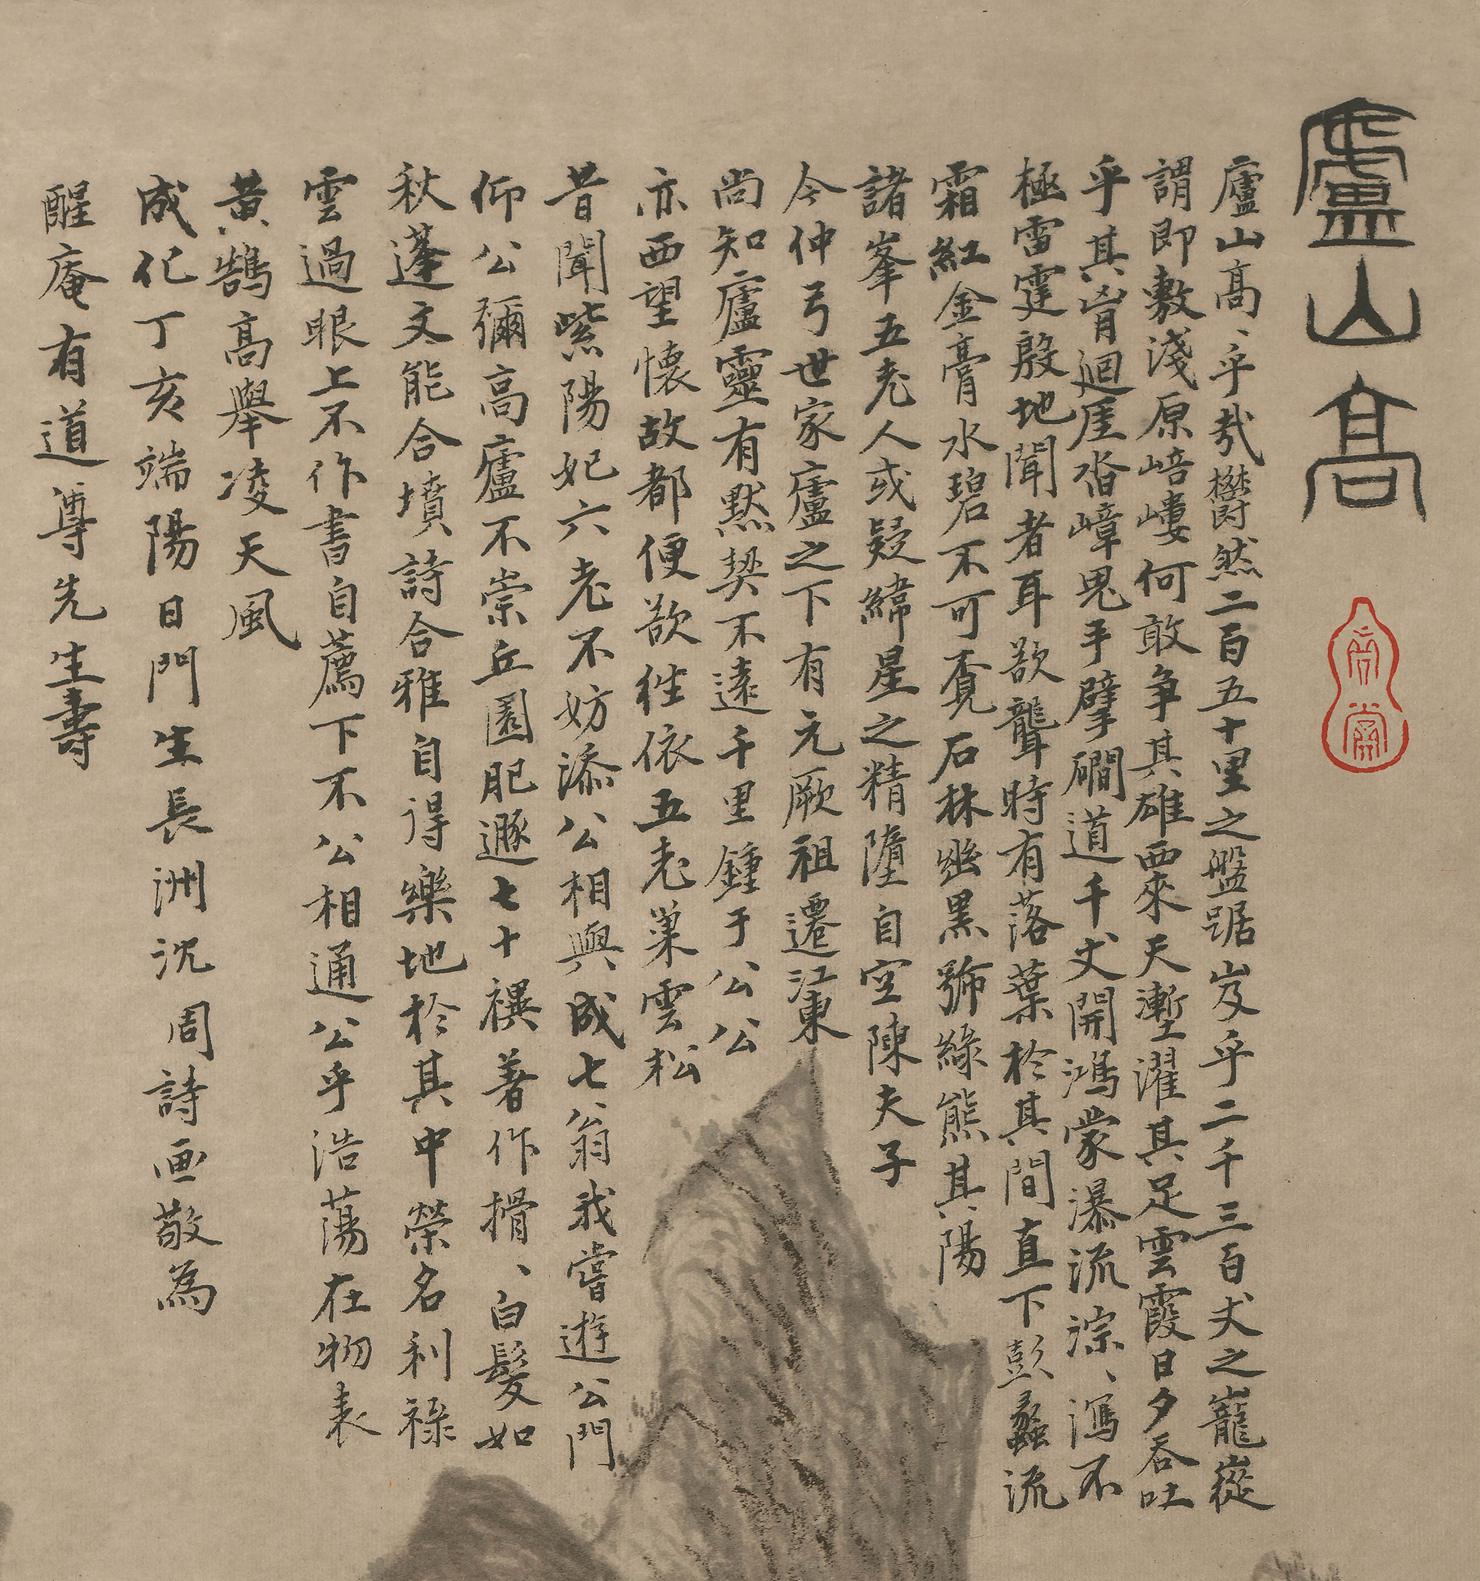 廬山高
廬山高、乎哉欝然二百五十里之盤踞岌乎二千三百丈之巃嵷
謂即敷淺原㟝嶁何敢争其雄西來天塹濯其足雲霞日夕吞吐
乎其胷迴厓沓嶂鬼手擘礀道千丈開鴻蒙瀑流淙、瀉不
極雷霆殷地聞者耳欲聾時有落葉於其間直下彭蠡流
霜紅金膏水碧不可覔石林幽黑號綠熊其陽
諸峯五老人或疑緯星之精墮自空陳夫子
今仲弓世家廬之下有元厥祖遷江東
尚知廬靈有默契不遠千里鍾于公公
亦西望懷故都便欲往依五老巢雲松
昔聞紫陽妃六老不妨添公相與成七、翁我嘗遊公門
仰公彌高廬不崇丘園肥遯七十襈著作搰、白髮如
秋蓬文能合墳詩合雅自得樂地於其中榮名利祿
雲過眼上不作書自薦下不公相通公乎浩蕩在物表
黄鵠高舉凌天風
成化丁亥端陽日門生長洲沈周詩画敬為
醒庵有道尊先生壽